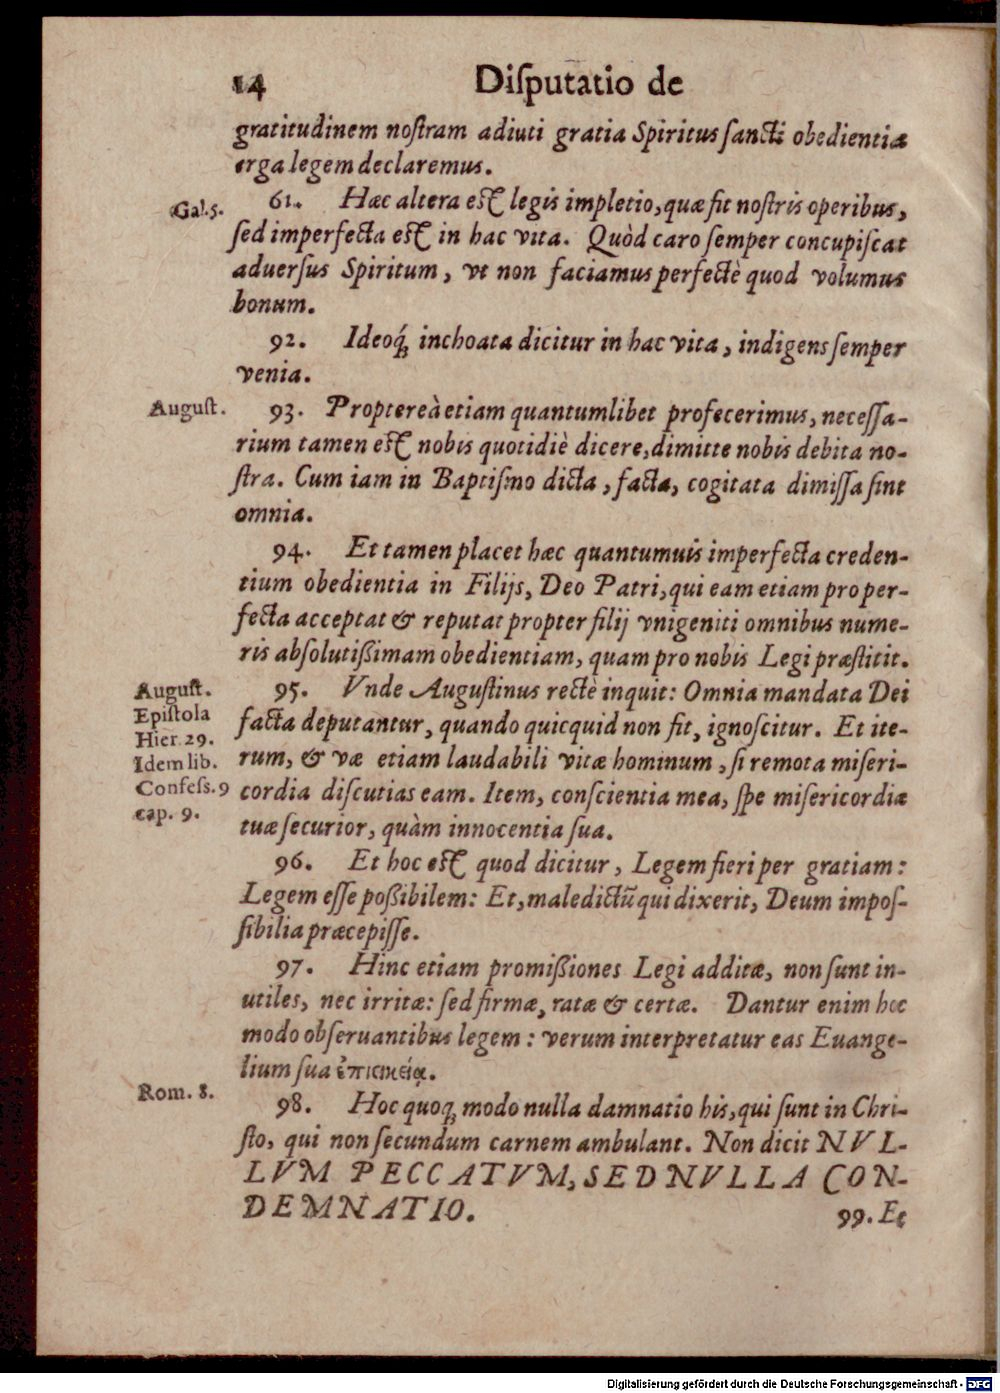 14 Diſputatio de
gratitudinem noſtram adiuti gratia Spiritus ſancti obedientiæ
erga legem declaremus.
Gal. 5.
61. Hæc altera eſt legis impletio, quæ fit noſtris operibus,
ſed imperfecta eſt in hac vita. Quòd caro ſemper concupiſcat
aduerſus Spiritum, vt non faciamus perfectè quod volumus
bonum.
92. Ideoq́; inchoata dicitur in hac vita, indigens ſemper
venia.
Auguſt.
93. Proptereà etiam quantumlibet profecerimus, neceſſa-
rium tamen eſt nobis quotidiè dicere, dimitte nobis debita no-
ſtra. Cum iam in Baptiſmo dicta, facta, cogitata dimiſſa ſint
omnia.
94. Et tamen placet hæc quantumuis imperfecta creden-
tium obedientia in Filijs, Deo Patri, qui eam etiam pro per-
fecta acceptat & reputat propter filij vnigeniti omnibus nume-
ris abſolutißimam obedientiam, quam pro nobis Legi præſtitit.
Auguſt.
Epiſtola
Hier. 29.
Idem lib.
Confeſs. 9
cap. 9.
95. Vnde Auguſtinus rectè inquit: Omnia mandata Dei
facta deputantur, quando quicquid non fit, ignoſcitur. Et ite-
rum, & væ etiam laudabili vitæ hominum, ſi remota miſeri-
cordia diſcutias eam. Item, conſcientia mea, ſpe miſericordiæ
tuæ ſecurior, quàm innocentia ſua.
96. Et hoc eſt quod dicitur, Legem fieri per gratiam:
Legem eſſe poßibilem: Et, maledictũ qui dixerit, Deum impoſ-
ſibilia præcepiſſe.
97. Hinc etiam promißiones Legi additæ, non ſunt in-
utiles, nec irritæ: ſed firmæ, ratæ & certæ. Dantur enim hoc
modo obſeruantibus legem: verum interpretatur eas Euange-
lium ſua ἐπιεικείᾳ.
Rom. 8.
98. Hoc quoq; modo nulla damnatio his, qui ſunt in Chri-
ſto, qui non ſecundum carnem ambulant. Non dicit NVL-
LVM PECCATVM, SED NVLLA CON-
DEMNATIO.
99. Et
Digitalisierung gefördert durch die Deutsche Forschungsgemeinschaft - DFG